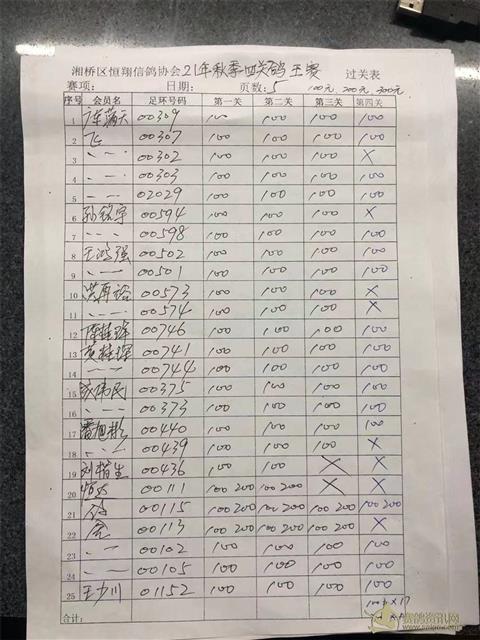 湘桥区恒翔信鸽协会21年秋季四关鸽王赛 过关表
赛项： 日期： 页数：5 100元 200元 300元
序号 会员名 足环号码 第一关 第二关 第三关 第四关
1 00309 100 100 100 100
2 飞 00307 100 100 100 100
3 〃 00302 100 100 100 ×
4 〃 00303 100 100 100 100
5 〃 02029 100 100 100 100
6 00594 100 100 100 ×
7 〃 00598 100 100 100 100
8 王鸿强 00502 100 100 100 100
9 〃 00501 100 100 100 100
10 洪再裕 00573 100 100 100 ×
11 〃 00574 100 100 100 ×
12 陈桂锋 00746 100 100 100 100
13 黄桂深 00741 100 100 100 100
14 〃 00744 100 100 100 100
15 伟民 00375 100 100 100 100
16 〃 00373 100 100 100 100
17 旭彬 00440 100 100 100 100
18 〃 00439 100 100 100 ×
19 刘楷生 00436 100 100 × ×
20 恒达 00111 100 200 100 200 × ×
21 00115 100 200 100 200 100 200 100 200
22 00113 100 200 100 200 100 200 ×
23 〃 00102 100 100 100 100
24 〃 00105 100 100 100 100
25 王少川 01152 100 100 100 100
100×17
合计：
赛鸽资讯网